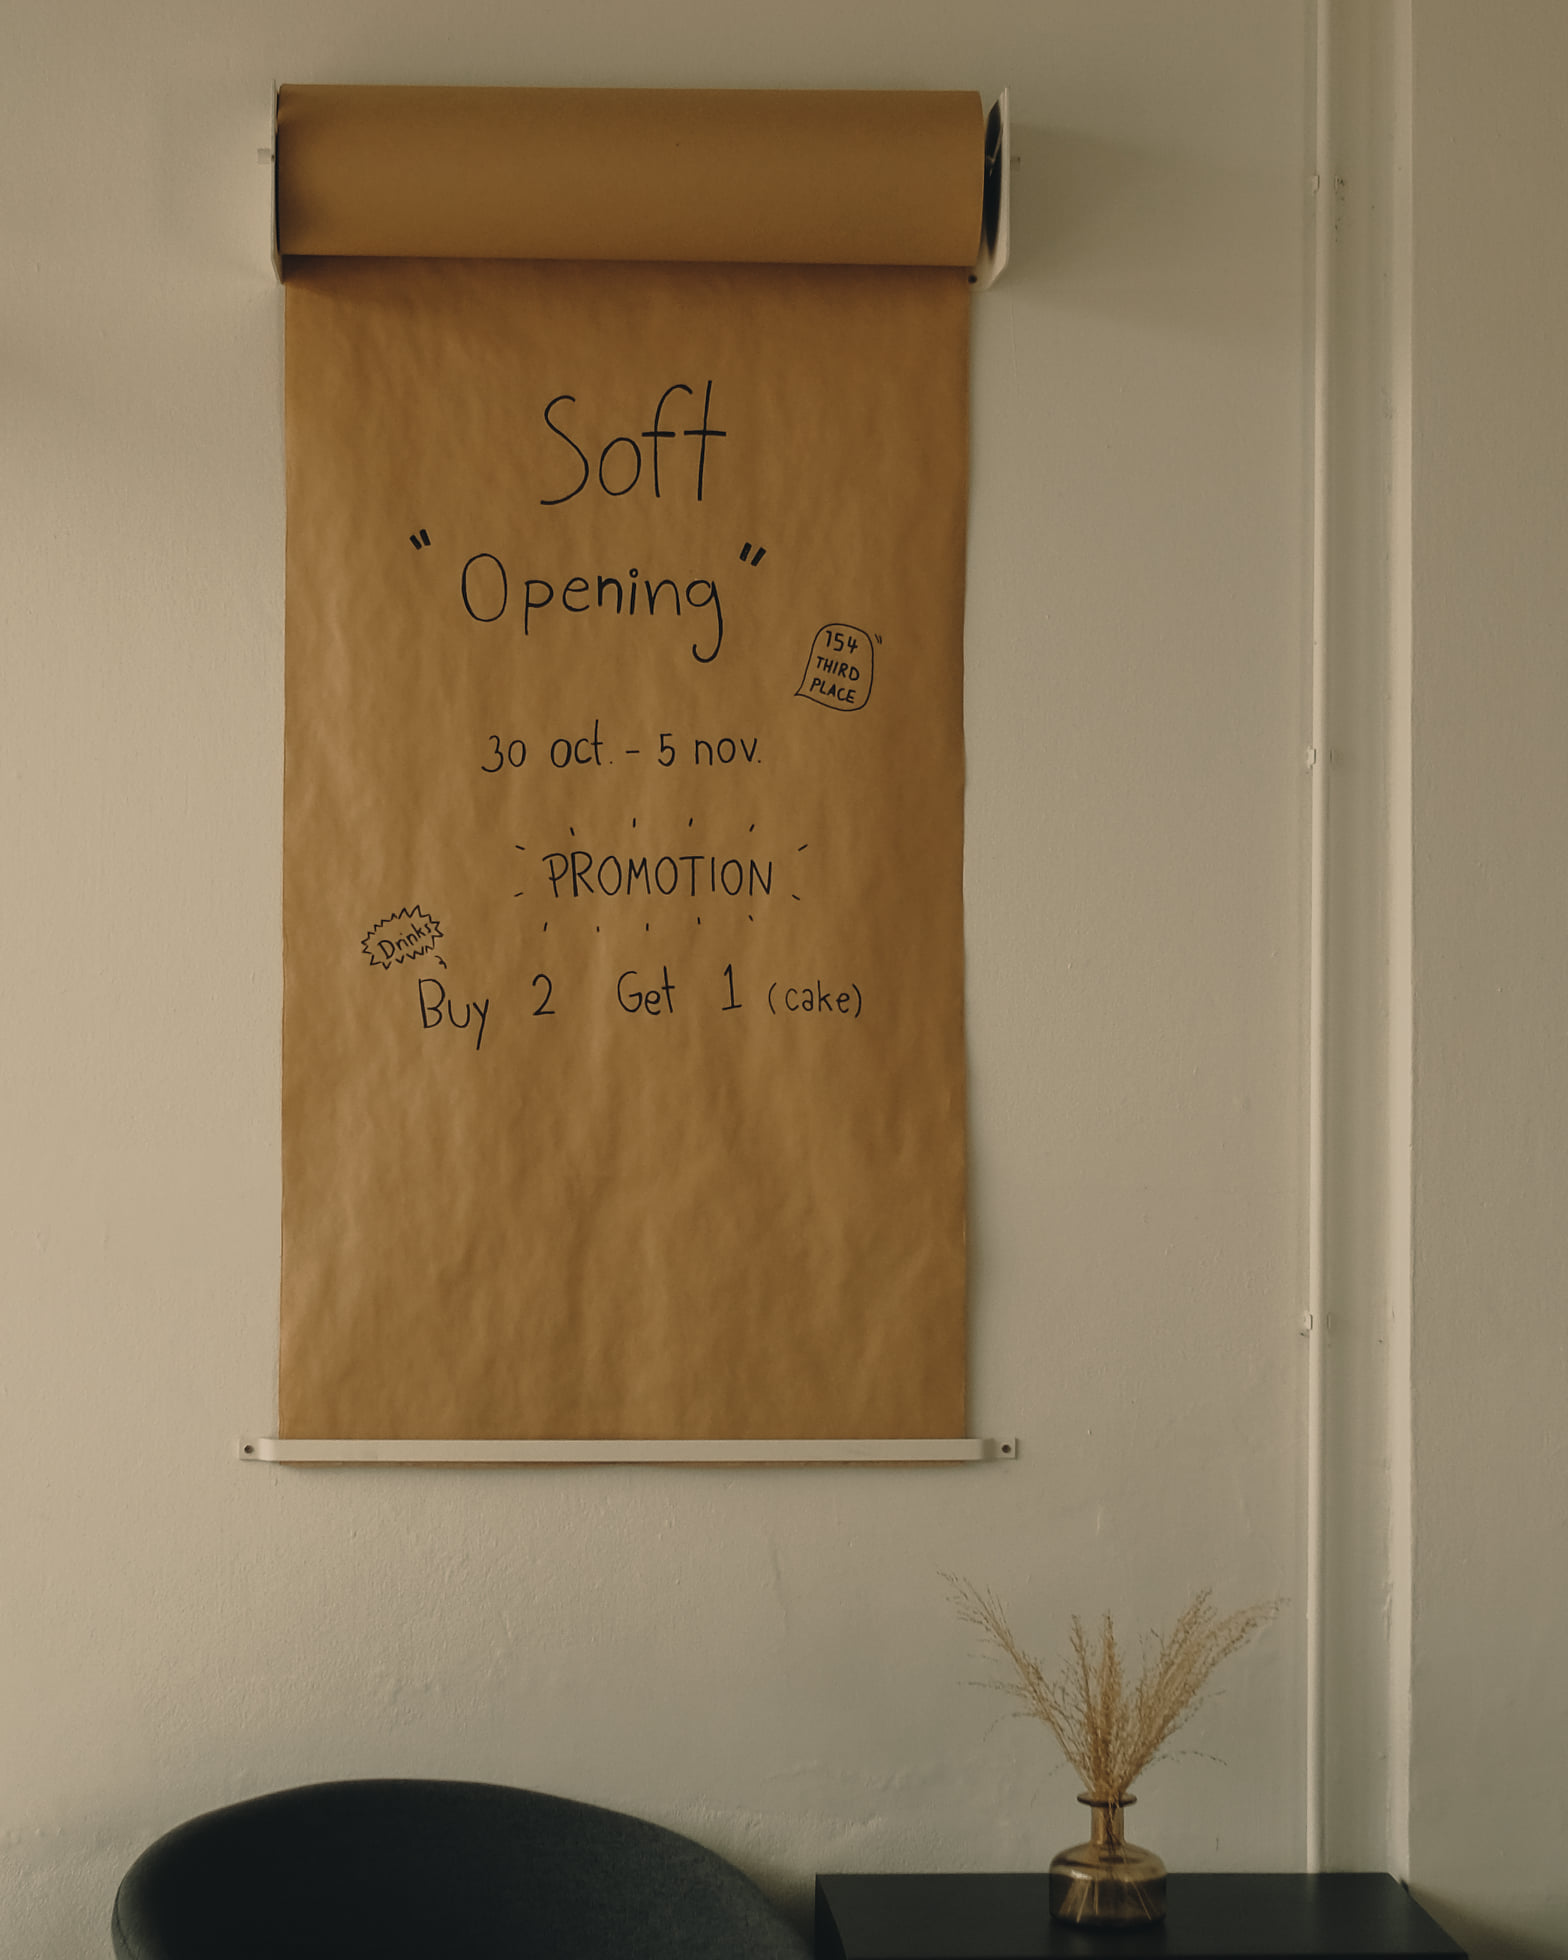 Soft
"Opening"
154
THIRD
PLACE
30 oct. - 5 nov.
PROMOTION
Drinks
Buy 2 Get 1 (cake)